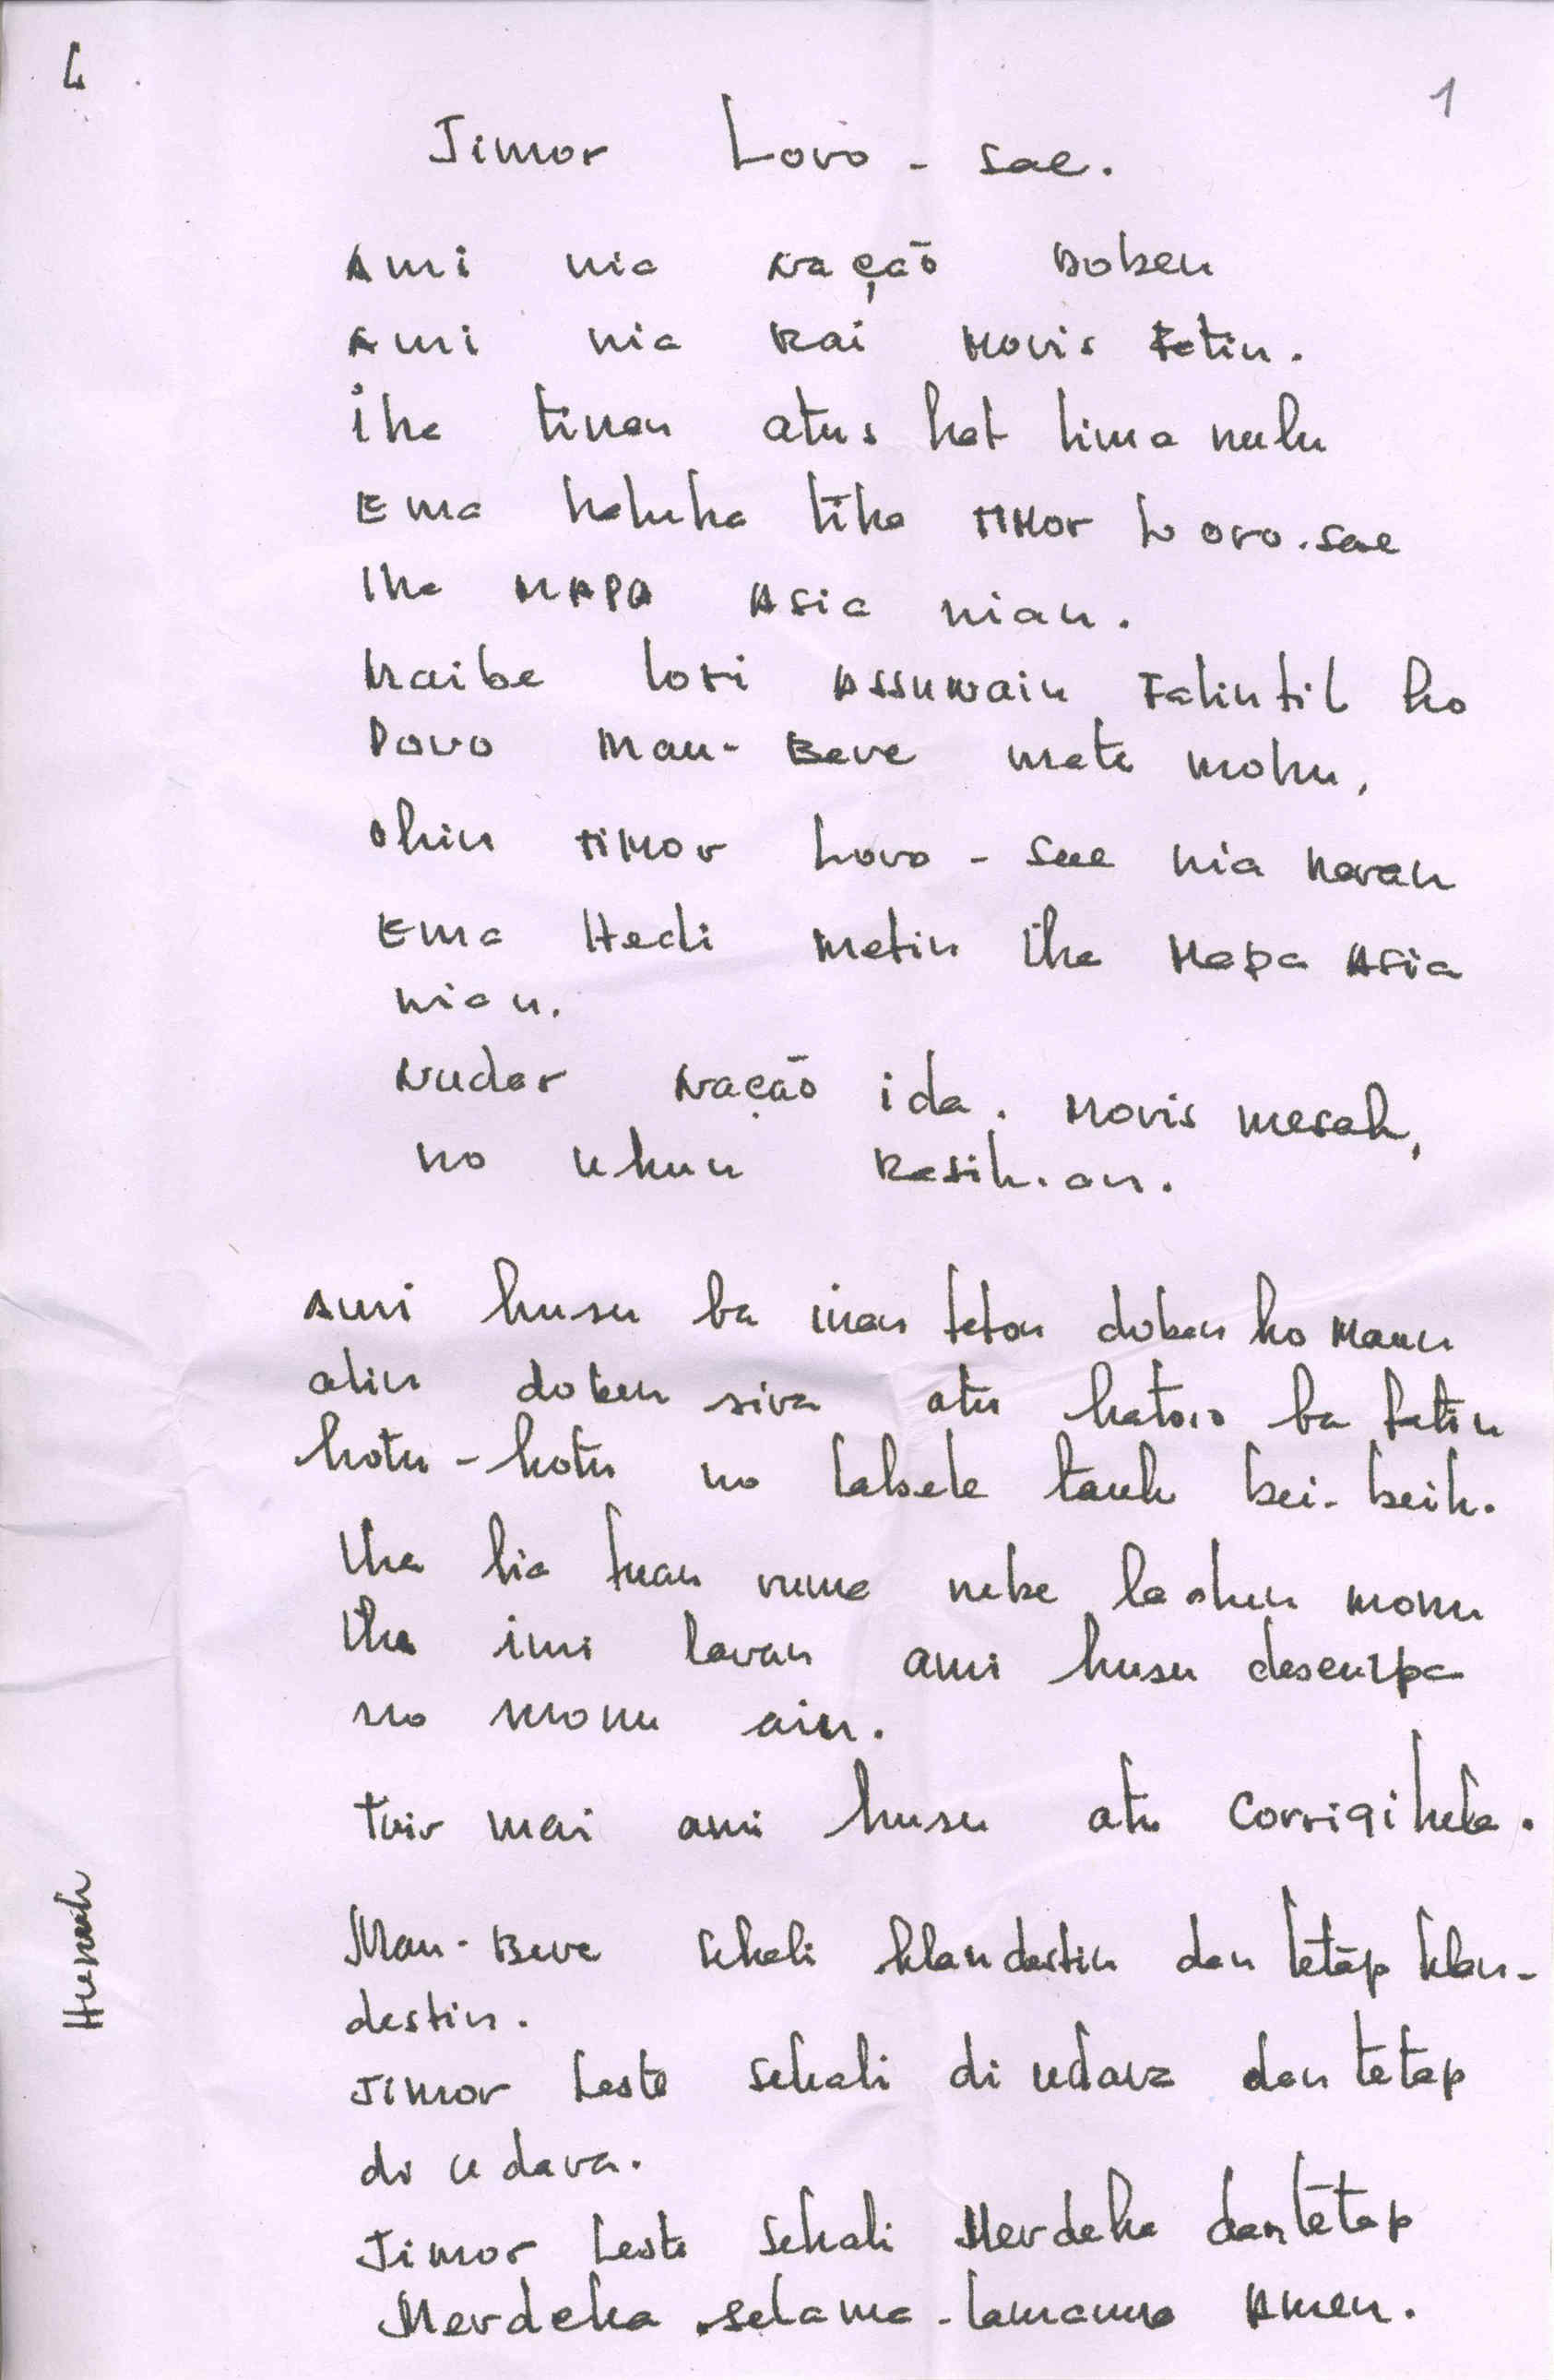 4
1
Timor Loro - sae.
Ami nia Nação Doben
Ami nia Rai Moris Fatin.
Iha tinan atus hat lima nulu
Ema haluha tiha Timor Loro-sae
Iha MAPA Asia nian.
Maibe lori Assuwain Falintil ho
Povo Mau-Bere mate mohu,
Ohin Timor Loro - sae nia naran
Ema Hedi metin iha Mapa Asia
nian.
Nudar Nação ida. Moris mesak,
no ukun Rasik-an.
Ami husu ba inan feton doben ho Maun
alin doben sira atu hatoro ba fatin
hotu-hotu no labele tauk bei-beik.
Iha lia fuan ruma nebe la ohin monu
Iha imi laran ami husu desculpa
no monu ain.
Tuir mai ami husu atu corrigi hela.
Mau-Bere sekali klandestin dan tetap klan-
destin.
Timor Leste sekali di udara dan tetap
di udara.
Timor Leste sekali Merdeka dan tetap
Merdeka selama-lamanya Amen.